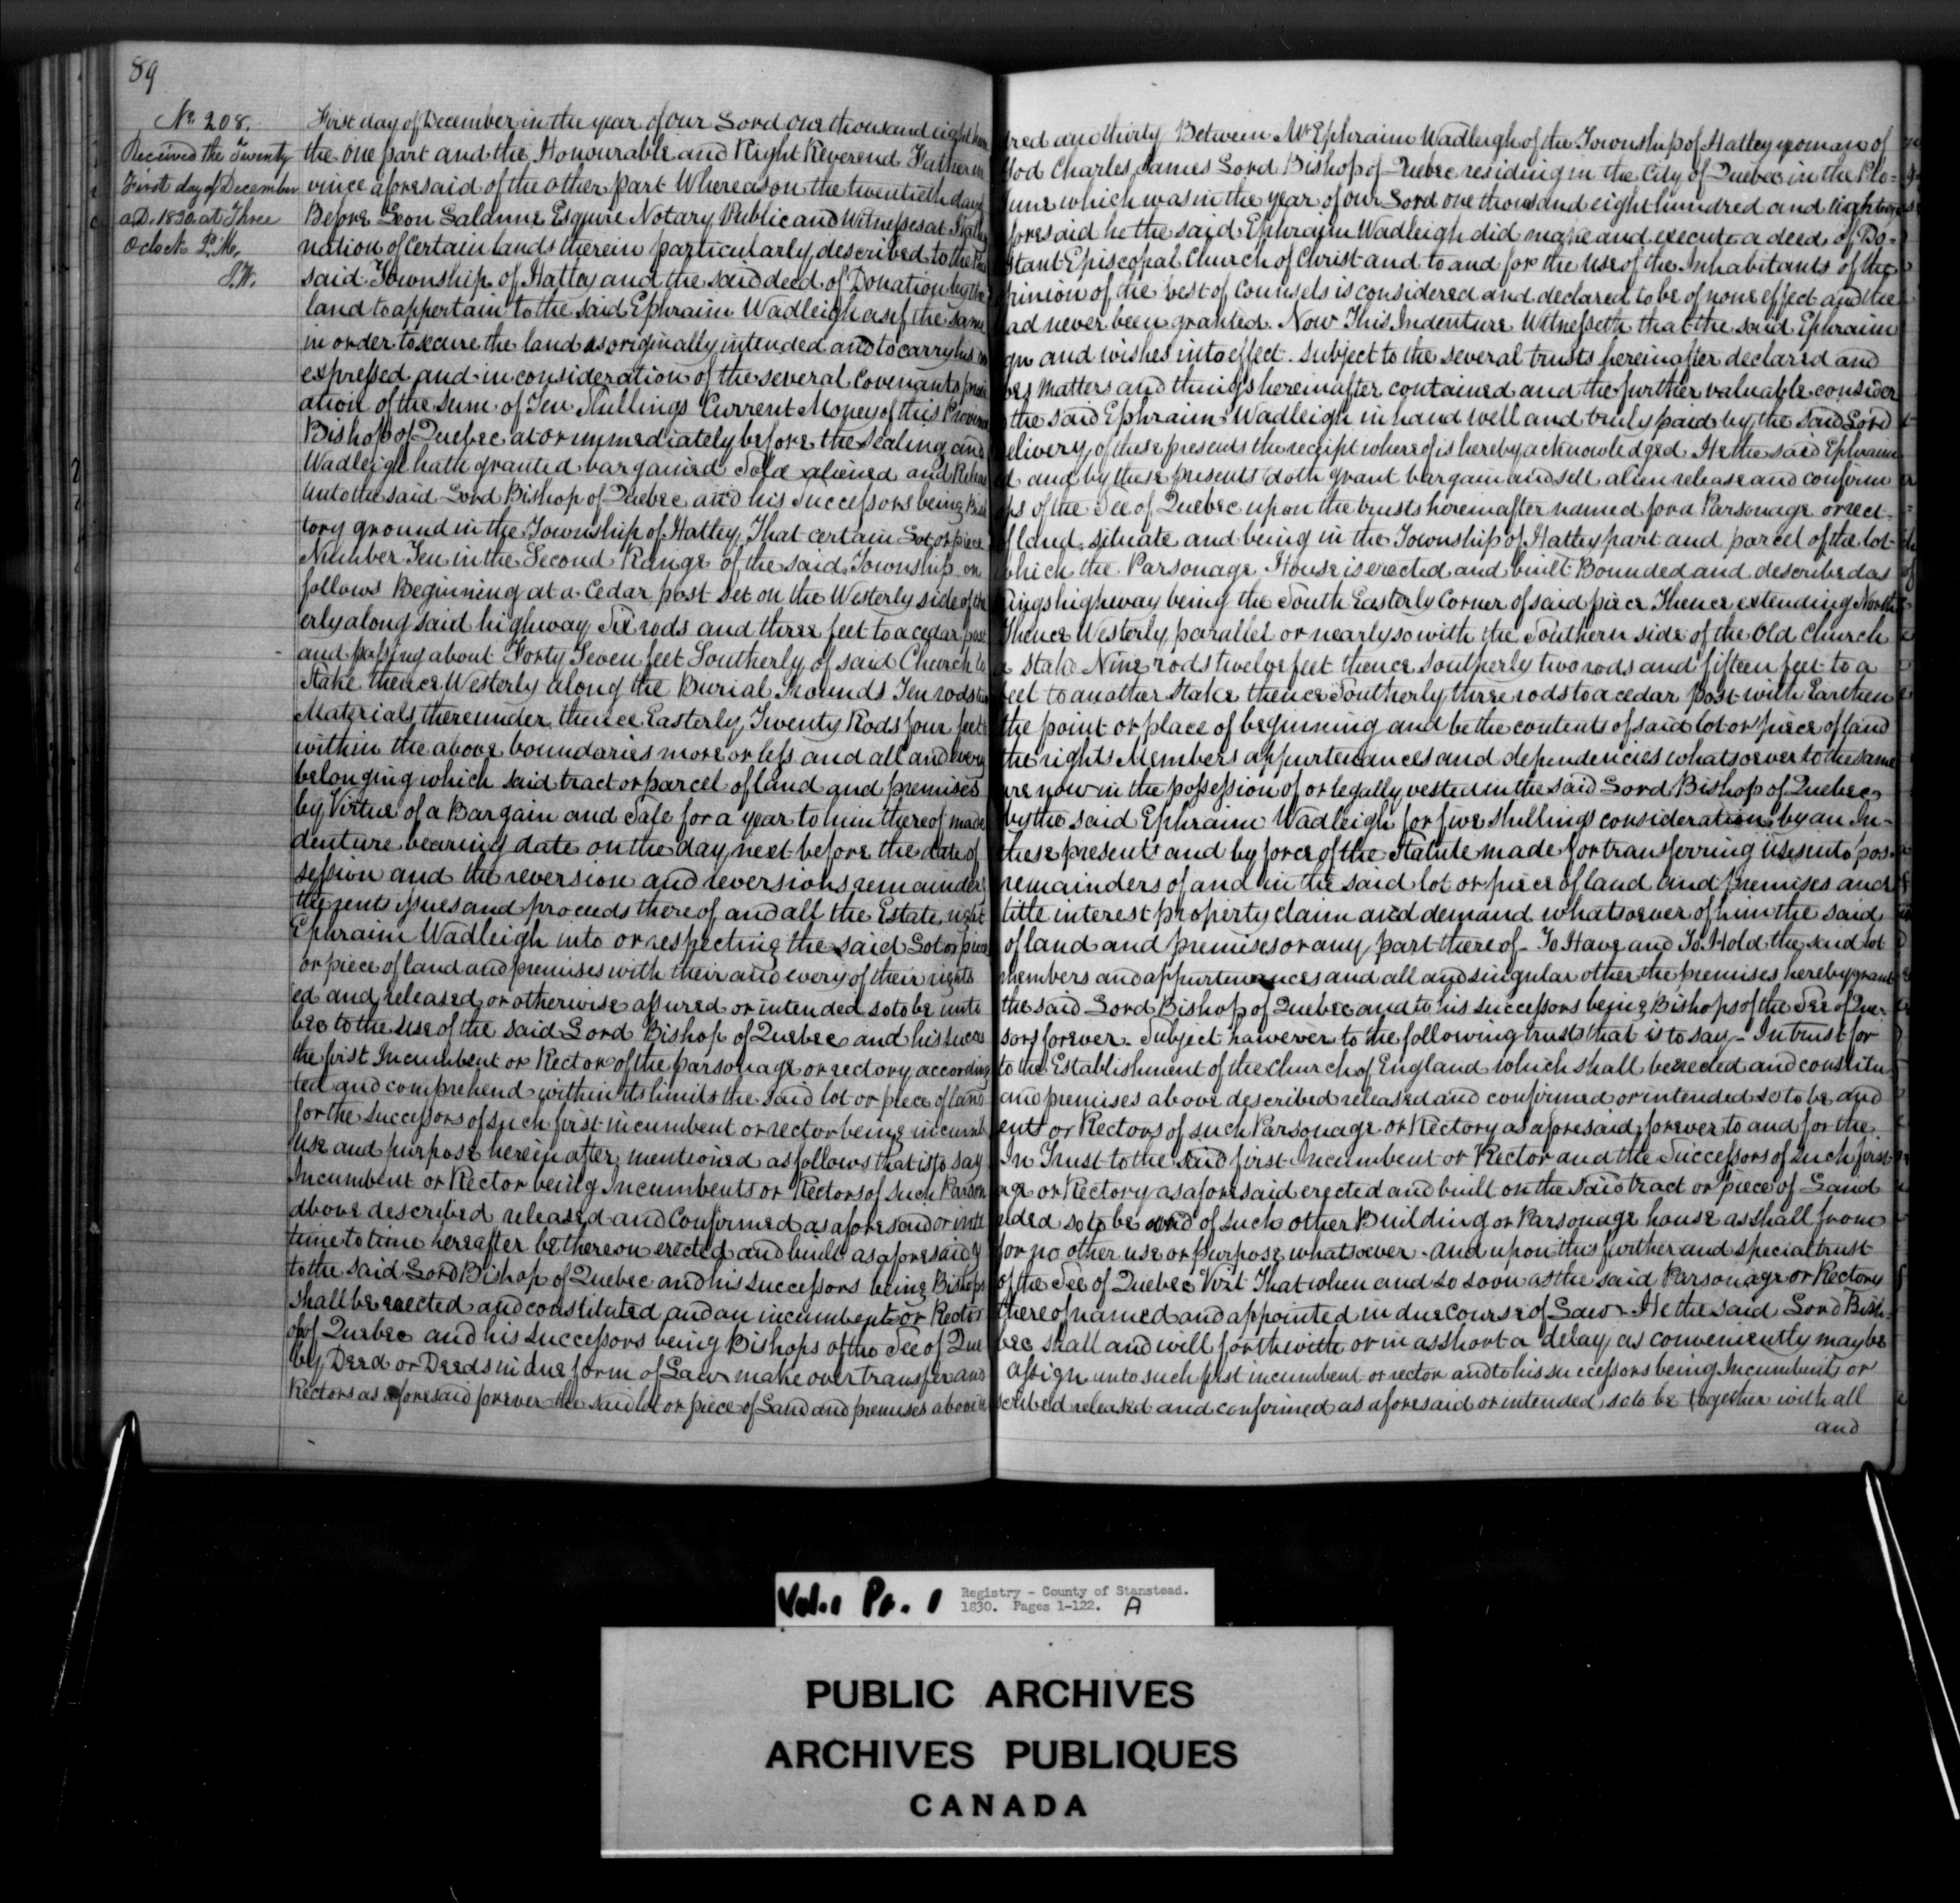 89
No. 208.
Received the Twenty
First day of December
a.D. 1830. at Three
Oclock P.M.
First day of December in the year of our Lord one thousand eight hundred and thirty Between Mr Ephraim Wadleigh of the Township of Hatley yeoman of
the one part and the Honourable and Right Reverend Father in God Charles James Lord Bishop of Quebec residing in the City of Quebec in the Pro-
vince aforesaid of the other part Whereas on the twentieth day June which was in the year of our Lord one thousand eight hundred and eighteen
Before Leon Lalanne Esquire Notary Public and Witnesses at Hatley aforesaid he the said Ephraim Wadleigh did make and execute a deed of Do-
nation of certain lands therein particularly described to the Protestant Episcopal Church of Christ and to and for the use of the Inhabitants of the
said Township of Hatley and the said deed of Donation by the opinion of the best of Counsels is considered and declared to be of none effect and the
land to appertain to the said Ephraim Wadleigh as if the same had never been granted. Now This Indenture Witnesseth that the said Ephraim
in order to secure the land as originally intended and to carry his and wishes into effect. Subject to the several trusts hereinafter declared and
expressed and in consideration of the several Covenants matters and things hereinafter contained and the further valuable consider
ation of the sum of Ten Shillings Current Money of this Province the said Ephraim Wadleigh in hand well and truly paid by the said Lord
Bishop of Quebec at or immediately before the sealing and delivery of these presents the receipt whereof is hereby acknowledged. He the said Ephraim
Wadleigh hath granted bargained Sold aliened and Released and by these presents doth grant bargain and sell alien release and confirm
unto the said Lord Bishop of Quebec and his successors being Bishops of the See of Quebec upon the trusts hereinafter named for a Parsonage or rect-
tory ground in the Township of Hatley, That certain Lot or piece of land, situate and being in the Township of Hatley part and parcel of the lot
Number Ten in the Second Range of the said Township on which the Parsonage House is erected and built Bounded and described as
follows Beginning at a Cedar post set on the Westerly side of the Kings highway being the South Easterly Corner of said piece Thence extending North
erly along said highway Six rods and three feet to a cedar post Thence Westerly parallel or nearly so with the Southern side of the Old Church
and passing about Forty Seven feet Southerly of said Church to a stake Nine rods twelve feet thence Southerly two rods and fifteen feet to a
Stake thence Westerly along the Burial Grounds Ten rods feet to another stake thence Southerly three rods to a cedar post with Earthen
Materials thereunder thence Easterly Twenty Rods four feet the point or place of beginning and be the contents of said lot or piece of land
within the above boundaries more or less and all and every the rights Members appurtenances and dependencies whatsoever to the same
belonging which said tract or parcel of land and premises are now in the possession of or legally vested in the said Lord Bishop of Quebec
by Virtue of a Bargain and Sale for a year to him thereof made by the said Ephraim Wadleigh for five shillings consideration by an In-
denture bearing date on the day next before the date of these presents and by force of the Statute made for transferring uses into pos-
session and the reversion and reversions remainder remainders of and in the said lot or piece of land and premises and
the rents issues and proceeds thereof and all the Estate right title interest property claim and demand whatsoever of him the said
Ephraim Wadleigh into or respecting the said Lot or piece of land and premises or any part thereof - To Have and To Hold the said lot
or piece of land and premises with their and every of their rights members and appurtenances and all and singular other the premises hereby grant
ed and released or otherwise assured or intended so to be unto the said Lord Bishop of Quebec and to his successors being Bishops of the See of Que-
bec to the use of the said Lord Bishop of Quebec and his successors forever. Subject however to the following trusts that is to say - In trust for
the first Incumbent or Rector of the parsonage or rectory according to the Establishment of the Church of England which shall be erected and constitu
ted and comprehend within its limits the said lot or piece of land and premises above described released and confirmed or intended so to be and
for the successors of such first incumbent or rector being incumbents or Rectors of such Parsonage or Rectory as aforesaid forever to and for the
use and purpose herein after mentioned as follows that is to say In Trust to the said first Incumbent or Rector and the Successors of such first
Incumbent or Rector being Incumbents or Rectors of such Parsonage or Rectory as aforesaid erected and built on the said tract or piece of Land
above described released and Confirmed as aforesaid or intended so to be and of such other Building or Parsonage house as shall from
time to time hereafter be thereon erected and built as aforesaid for no other use or purpose whatsoever. And upon this further and special trust
to the said Lord Bishop of Quebec and his successors being Bishops of the See of Quebec Vizt That when and so soon as the said Parsonage or Rectory
shall be erected and constituted and an incumbent or Rector thereof named and appointed in due course of Law. He the said Lord Bish-
op of Quebec and his successors being Bishops of the See of Quebec shall and will forthwith or in as short a delay as conveniently may be
by Deed or Deeds in due form of Law make over transfer and assign unto such first incumbent or rector and to his successors being Incumbents or
Rectors as aforesaid forever the said lot or piece of Land and premises above described released and confirmed as aforesaid or intended so to be together with all
and
Vol. 1 Pa. 1
Registry - County of Stanstead.
1830. Pages 1-122. A
PUBLIC ARCHIVES
ARCHIVES PUBLIQUES
CANADA